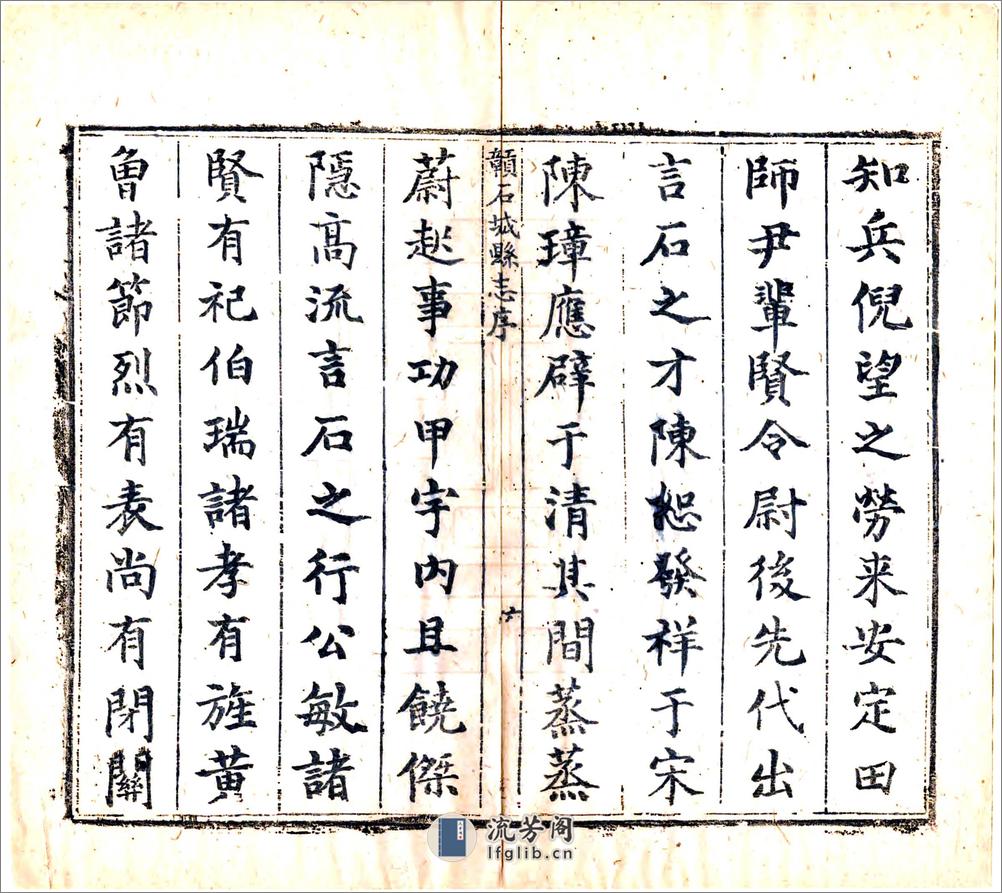 知兵倪望之勞来安定田
師尹輩賢令尉後先代出
言石之才陳恕發祥于宋
陳璋應辟于清其間蒸蒸
贑石城縣志序
六
蔚起事功甲宇内且饒傑
隠髙流言石之行公敏諸
賢有祀伯瑞諸孝有旌黄
魯諸節烈有表尚有閉關
流芳阁
lfglib.cn